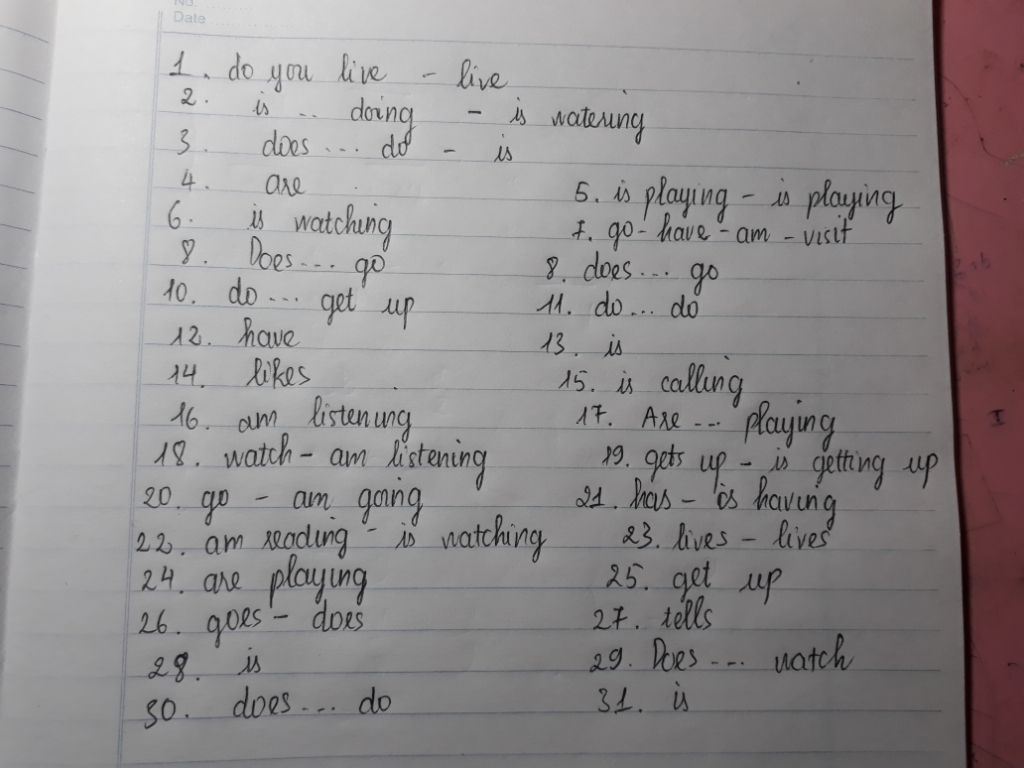 No.
Date
1. do you live - live
2. is ... doing - is watering
3. does ... do - is
4. are 5. is playing - is playing
6. is watching 7. go - have - am - visit
8. Does ... go 8. does ... go
10. do ... get up 11. do ... do
12. have 13. is
14. likes 15. is calling
16. am listening 17. Are ... playing
18. watch - am listening 19. gets up - is getting up
20. go - am going 21. has - is having
22. am reading - is watching 23. lives - lives
24. are playing 25. get up
26. goes - does 27. tells
28. is 29. Does ... watch
30. does ... do 31. is